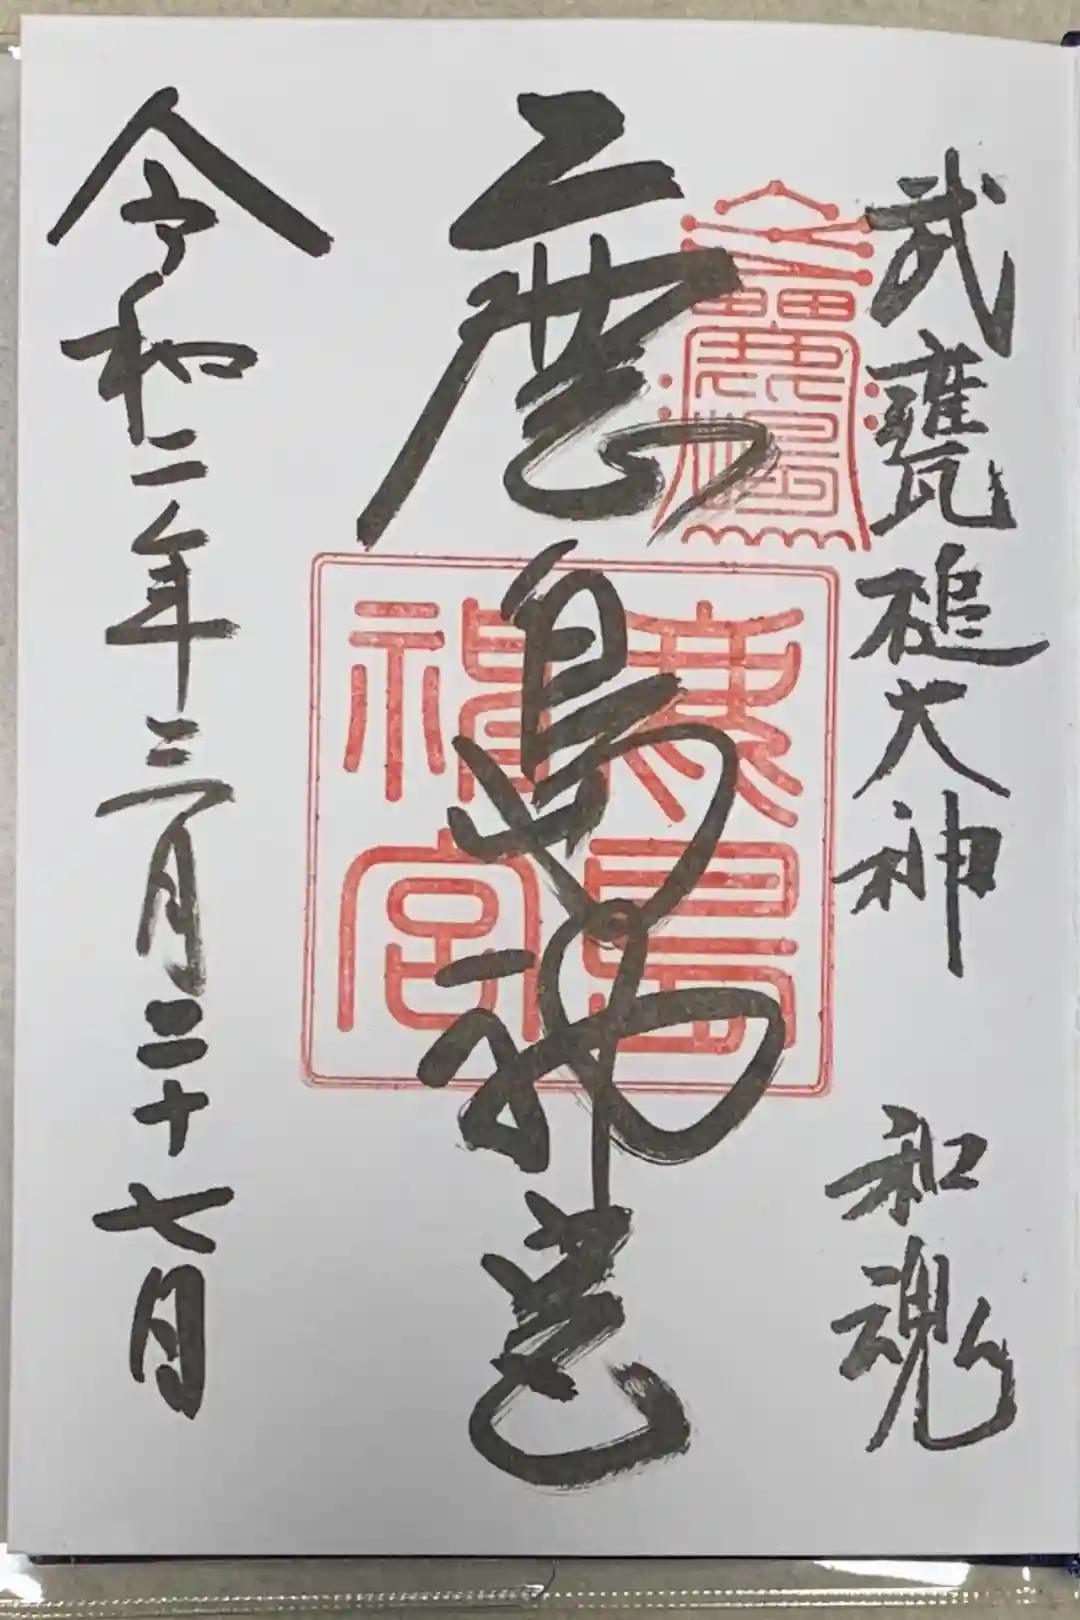 武甕槌大神 和魂
鹿島神宮
令和二年三月二十七日
鹿島
神宮